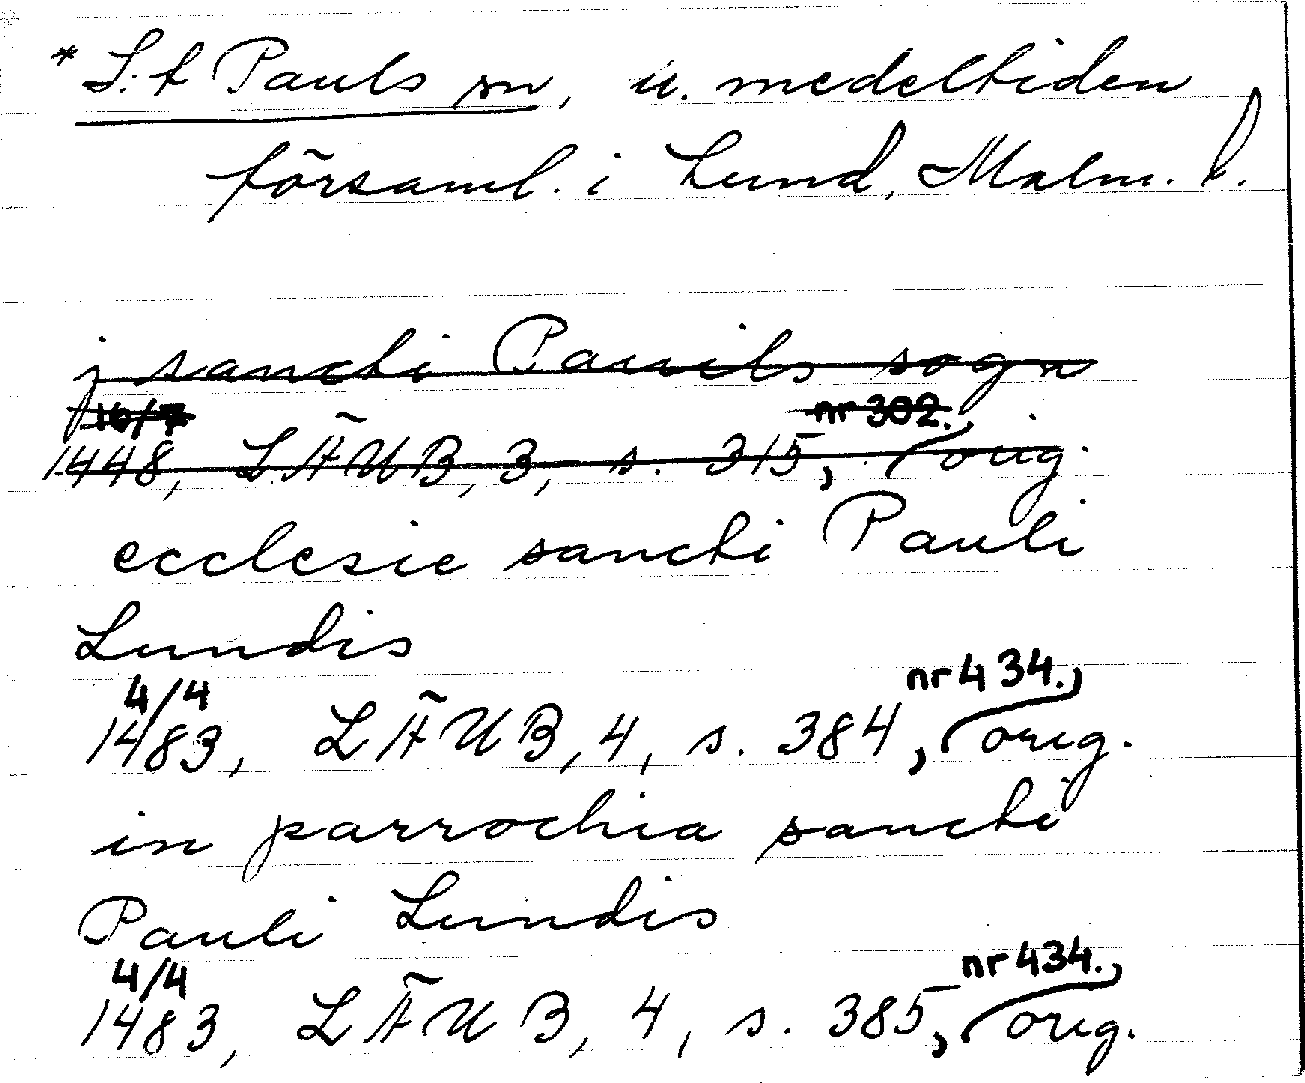 * S:t Pauls sn, u. medeltiden
församl. i Lund, Malm. l.
j sancti Pauils sogn
16/7 nr 302.,
1448, LÄUB, 3, s. 315, orig.
ecclesie sancti Pauli
Lundis
4/4 nr 434.,
1483, LÄUB, 4, s. 384, orig.
in parrochia sancti
Pauli Lundis
4/4 nr 434.,
1483, LÄUB, 4, s. 385, orig.